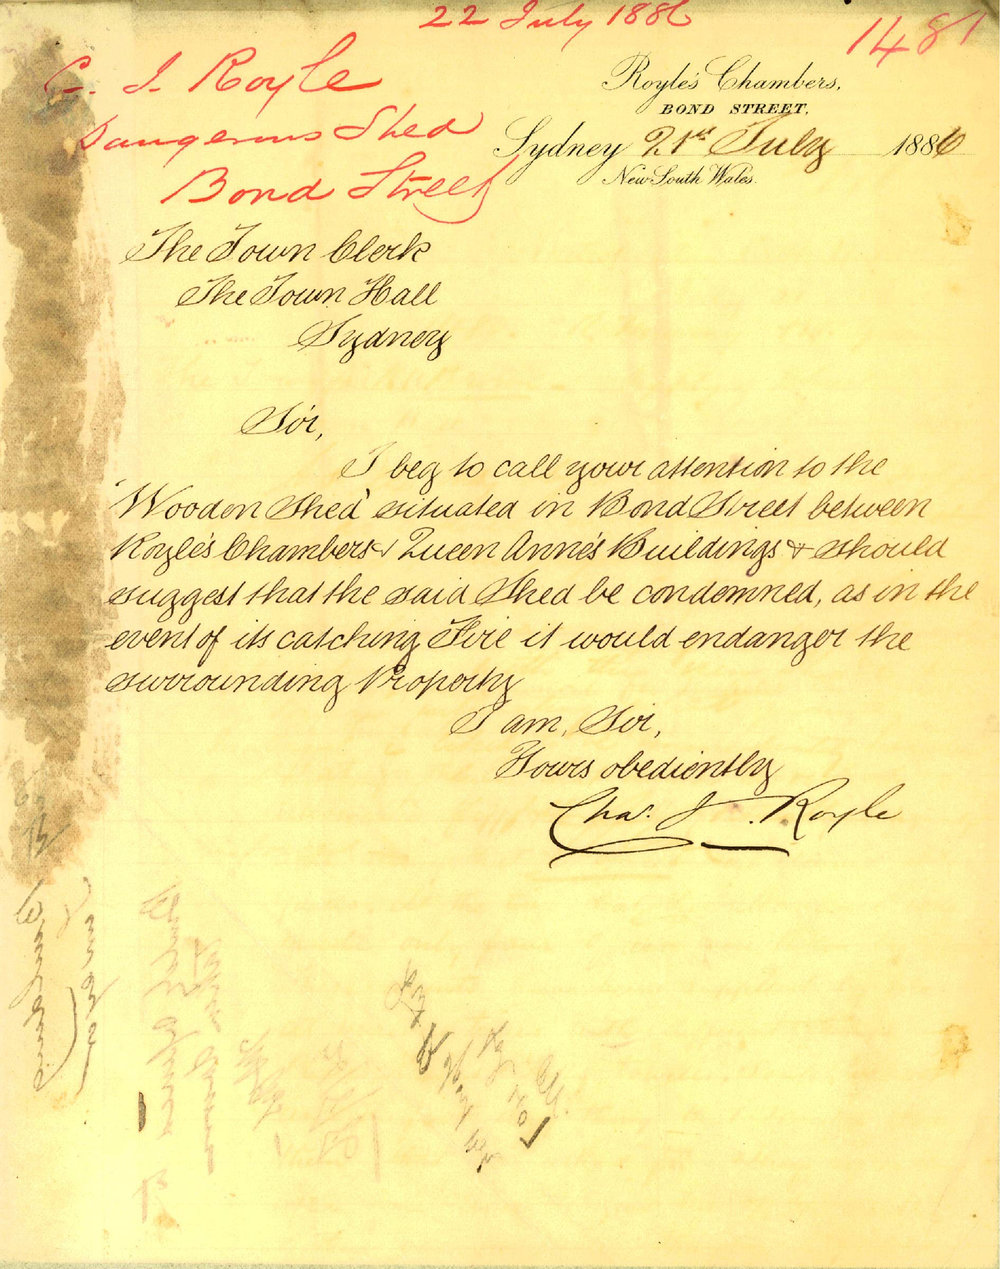 22 July 1886
1481
C. J. Royle
Dangerous Shed
Bond Street
Royle's Chambers,
BOND STREET,
Sydney 21st July 1886
New South Wales.
The Town Clerk
The Town Hall
Sydney
Sir,
I beg to call your attention to the
'Wooden Shed' situated in Bond Street between
Royle's Chambers & Queen Anne's Buildings & should
suggest that the said Shed be condemned, as in the
event of its catching Fire it would endanger the
surrounding Property
I am, Sir,
Yours obediently
Chas. J. Royle